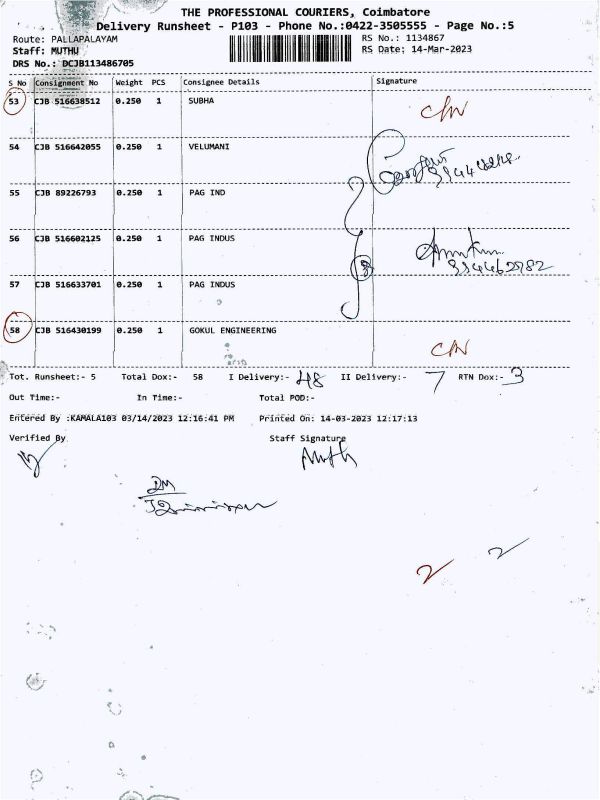 THE PROFESSIONAL COURIERS, Coimbatore
Delivery Runsheet - P103 - Phone No.:0422-3505555 - Page No.:5
Route: PALLAPALAYAM RS No.: 1134867
Staff: MUTHU RS Date: 14-Mar-2023
DRS No.: DCJB113486705
S No Consignment No Weight PCS Consignee Details Signature
53 CJB 516638512 0.250 1 SUBHA
54 CJB 516642055 0.250 1 VELUMANI
55 CJB 89226793 0.250 1 PAG IND
56 CJB 516602125 0.250 1 PAG INDUS
57 CJB 516633701 0.250 1 PAG INDUS
58 CJB 516430199 0.250 1 GOKUL ENGINEERING
Tot. Runsheet:- 5 Total Dox:- 58 I Delivery:- 48 II Delivery:- 7 RTN Dox:- 3
Out Time:- In Time:- Total POD:-
Entered By :KAMALA103 03/14/2023 12:16:41 PM Printed On: 14-03-2023 12:17:13
Verified By Staff Signature
Muth